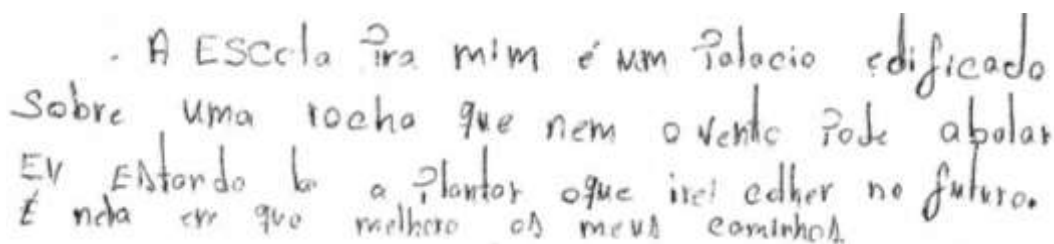 . A EScola Pra mim é um Palacio edificado
Sobre uma rocha que nem o vento Pode abalar
EU Estando la a Plantar oque irei colher no futuro.
É nela em que melhoro os meus caminhos